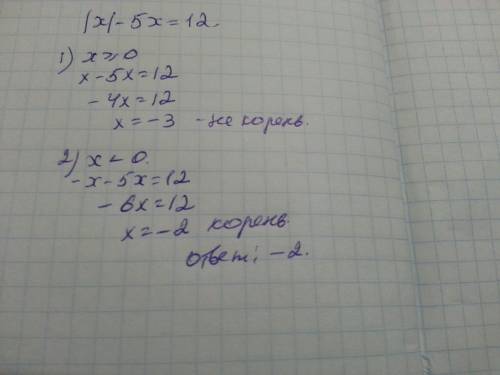 |x|-5x=12.
1) x≥0
x-5x=12
-4x=12
x=-3 - не корень.
2) x<0.
-x-5x=12
-6x=12
x=-2 корень.
ответ: -2.